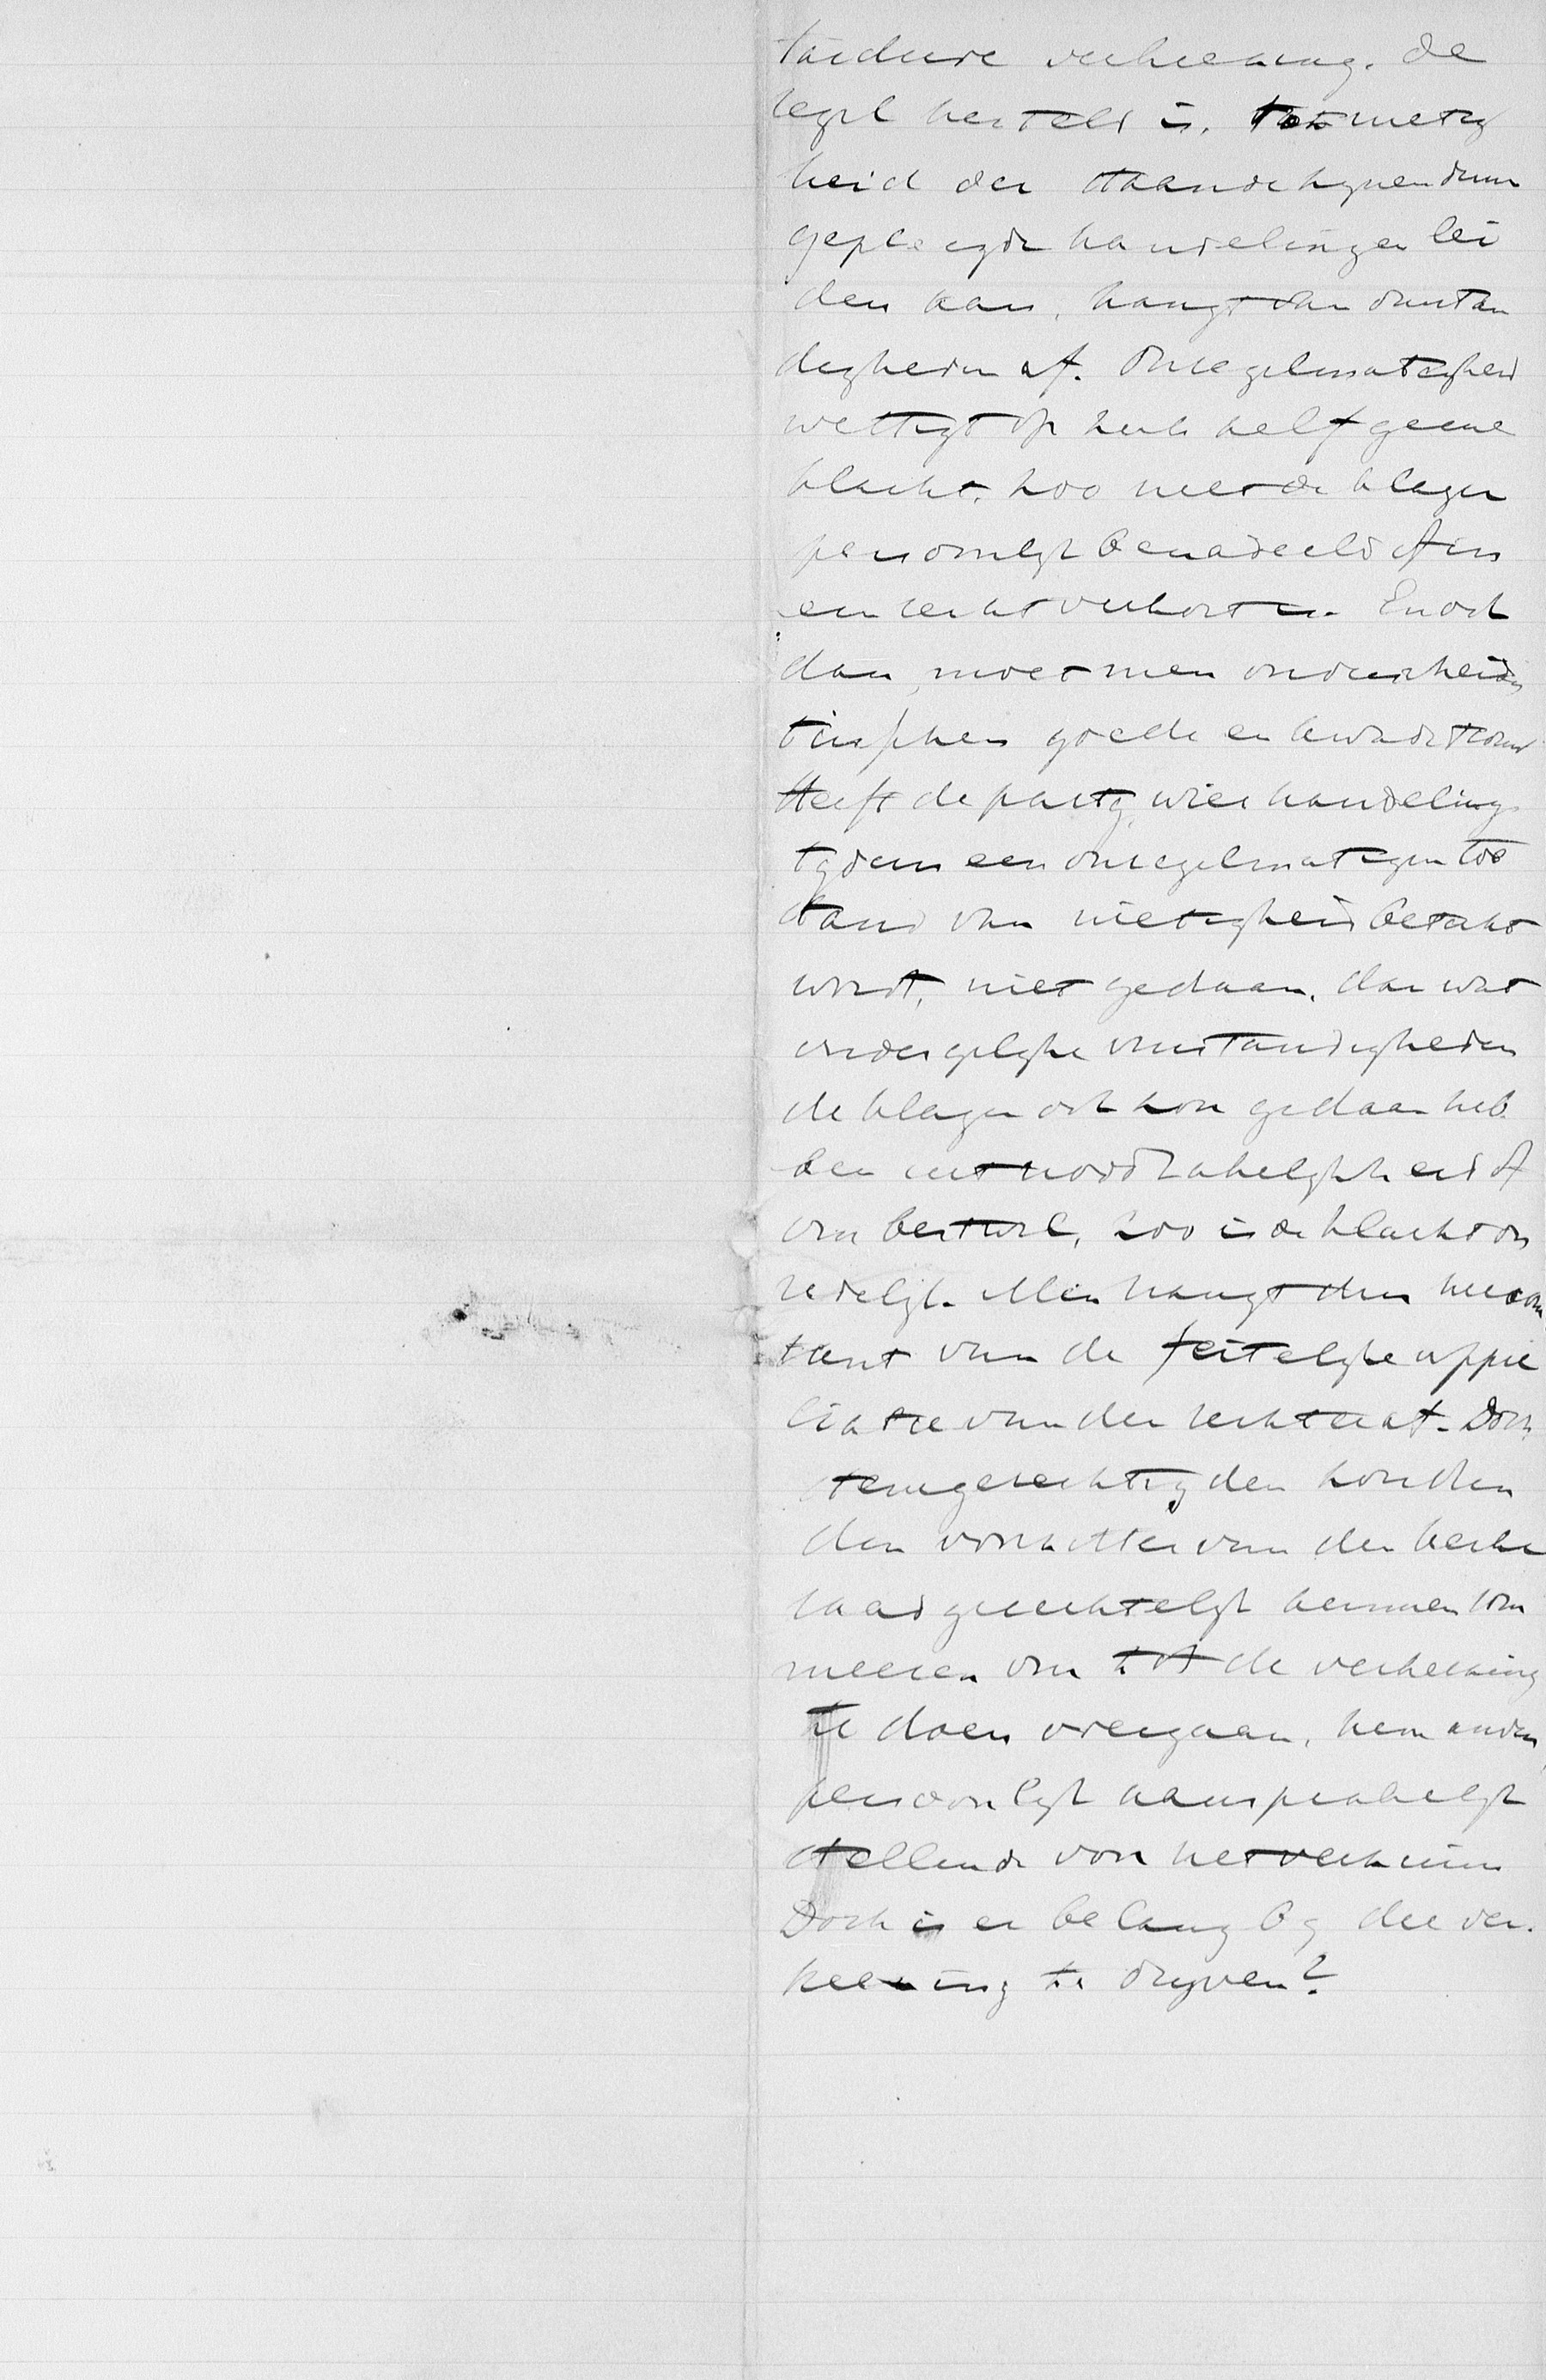 tardieve verkiezing. de
regel hersteld is. tot nietig
heid der staande hyven dien
gepleegde handelingen lei
den kan, hangt van omstan
digheden af. Onregelmatigheid
wettigt op zich zelf geene
klacht. zoo niet de klager
persoonlyk benadeeld of in
een recht verkort is. En ook
dan, moet men onderscheiden
tusschen goede en kwade trouw
Heeft de party, wier handeling
tydens een onregelmatigen toe
stand van nietigheid beticht
wordt, niet gedaan, dan wat
onder gelyke omstandigheden
de klager ook zou gedaan heb
ben uit noodzakelykheid of
om bestwil, zoo is de klacht on
redelyk. Men hangt dus
van de feitelyke appre
ciatie van den rechter af. Doch
stemgerechtigden konden
den voorzitter van den kerke
raad gerechtelyk kunnen som
meeren om tot de verkiezing
te doen overgaan, hem anders
persoonlyk aansprakelyk
stellende voor het verzuim
Doch is er belang by die ver.
kiezing te dryven?